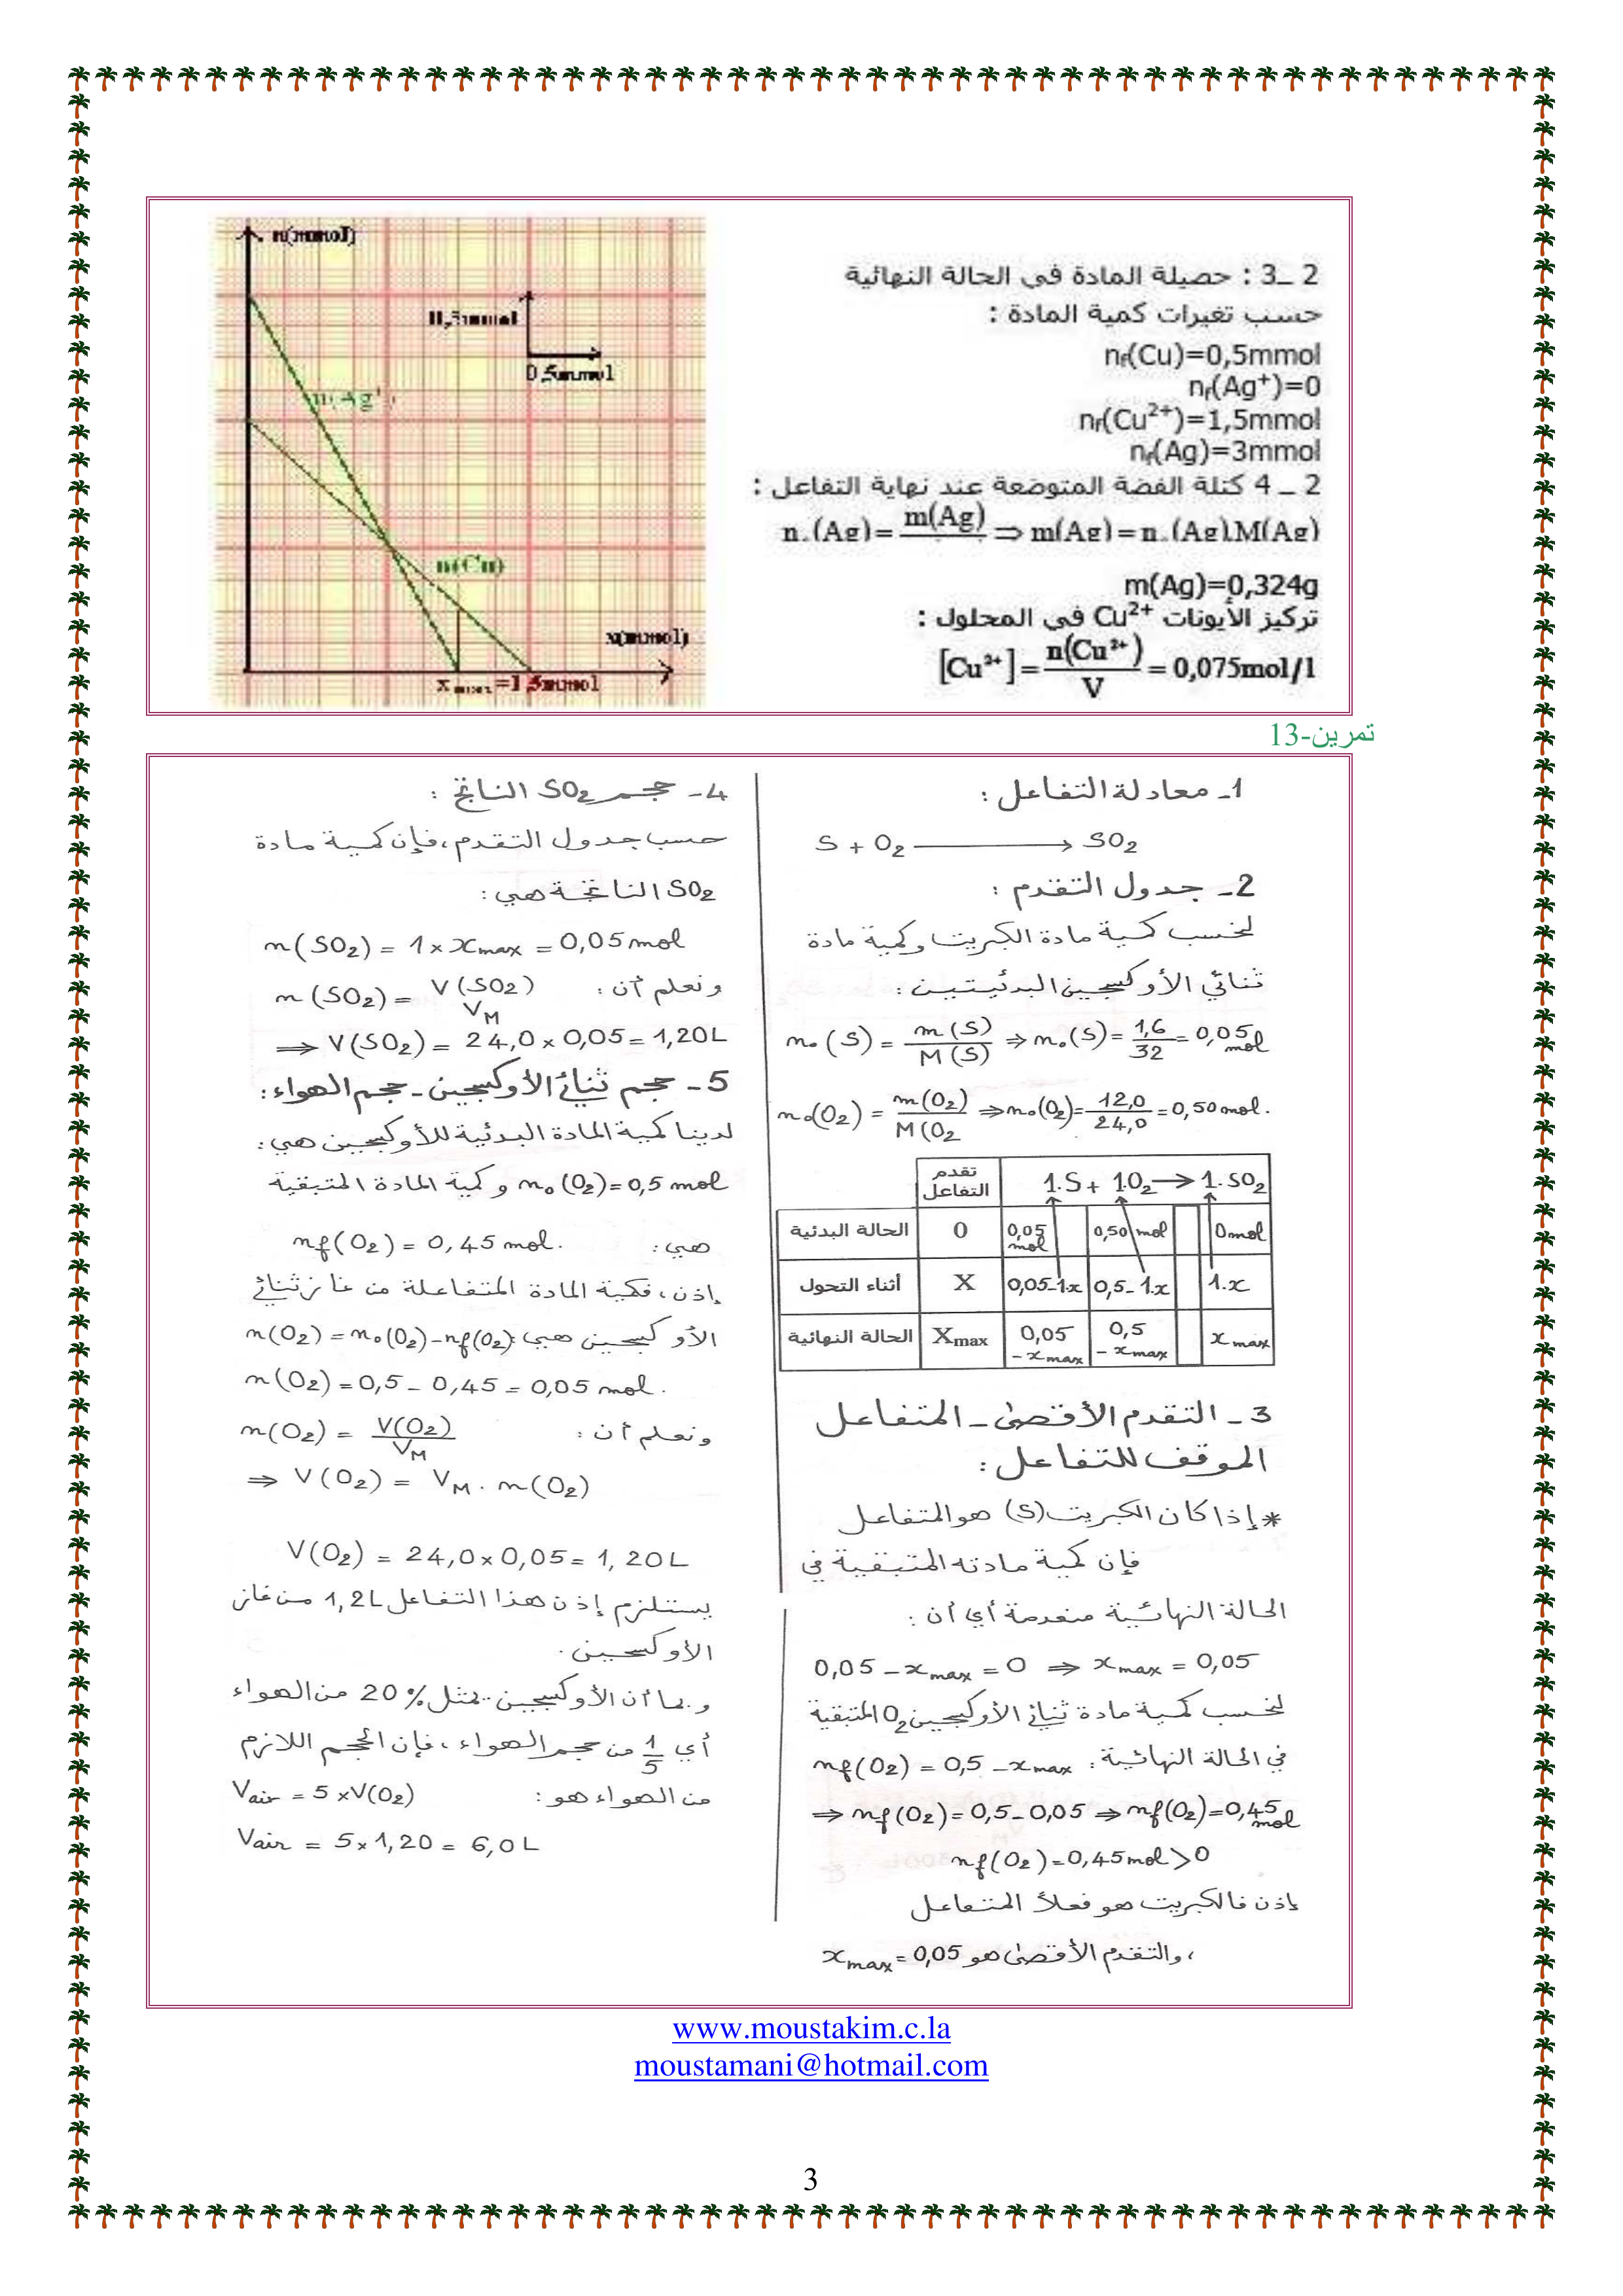 n(mmol)
0,5mmol
n(Ag⁺)
n(Cu)
x(mmol)
x max =1,5mmol
2 _3 : حصيلة المادة في الحالة النهائية
حسب تغيرات كمية المادة :
nf(Cu)=0,5mmol
nf(Ag⁺)=0
nf(Cu²⁺)=1,5mmol
nf(Ag)=3mmol
2 _ 4 كتلة الفضة المتوضعة عند نهاية التفاعل :
n.(Ag)= m(Ag) ⇒ m(Ag)=n.(Ag).M(Ag)
m(Ag)=0,324g
تركيز الأيونات Cu²⁺ في المحلول :
[Cu²⁺]= n(Cu²⁺)/V = 0,075mol/l
تمرين-13
1- معادلة التفاعل :
S + O₂ ⟶ SO₂
2- جدول التقدم :
لنحسب كمية مادة الكبريت وكمية مادة
ثنائي الأوكسجين البدئيتين :
n₀(S) = m(S)/M(S) ⇒ n₀(S) = 1,6/32 = 0,05 mol
n₀(O₂) = m(O₂)/M(O₂ ⇒ n₀(O₂) = 12,0/24,0 = 0,50 mol.
تقدم التفاعل 1.S + 1O₂ → 1.SO₂
الحالة البدئية 0 0,05 mol 0,50 mol 0mol
أثناء التحول X 0,05-1.x 0,5-1.x 1.x
الحالة النهائية Xmax 0,05 - xmax 0,5 - xmax xmax
3 - التقدم الأقصى - المتفاعل
الموقف للتفاعل :
* إذا كان الكبريت (S) هو المتفاعل
فإن كمية مادته المتبقية في
الحالة النهائية منعدمة أي أن :
0,05 - xmax = 0 ⇒ xmax = 0,05
لنحسب كمية مادة ثنائي الأوكسجين O₂ المتبقية
في الحالة النهائية : nf(O₂) = 0,5 - xmax
⇒ nf(O₂) = 0,5 - 0,05 ⇒ nf(O₂) = 0,45 mol
nf(O₂) = 0,45 mol > 0
إذن فالكبريت هو فعلاً المتفاعل
، والتقدم الأقصى هو xmax = 0,05
4- حجم SO₂ الناتج :
حسب جدول التقدم، فإن كمية مادة
SO₂ الناتجة هي :
n(SO₂) = 1 × xmax = 0,05 mol
ونعلم أن : n(SO₂) = V(SO₂)/VM
⇒ V(SO₂) = 24,0 × 0,05 = 1,20L
5 - حجم ثنائي الأوكسجين - حجم الهواء :
لدينا كمية المادة البدئية للأوكسجين هي :
n₀(O₂) = 0,5 mol و كمية المادة المتبقية
هي : nf(O₂) = 0,45 mol.
إذن، فكمية المادة المتفاعلة من غاز ثنائي
الأوكسجين هي : n(O₂) = n₀(O₂) - nf(O₂)
n(O₂) = 0,5 - 0,45 = 0,05 mol.
ونعلم أن : n(O₂) = V(O₂)/VM
⇒ V(O₂) = VM . n(O₂)
V(O₂) = 24,0 × 0,05 = 1,20L
يستلزم إذن هذا التفاعل 1,2L من غاز
الأوكسجين .
و بما أن الأوكسجين يمثل 20% من الهواء
أي 1/5 من حجم الهواء، فإن الحجم اللازم
من الهواء هو : Vair = 5 × V(O₂)
Vair = 5 × 1,20 = 6,0L
www.moustakim.c.la
moustamani@hotmail.com
3